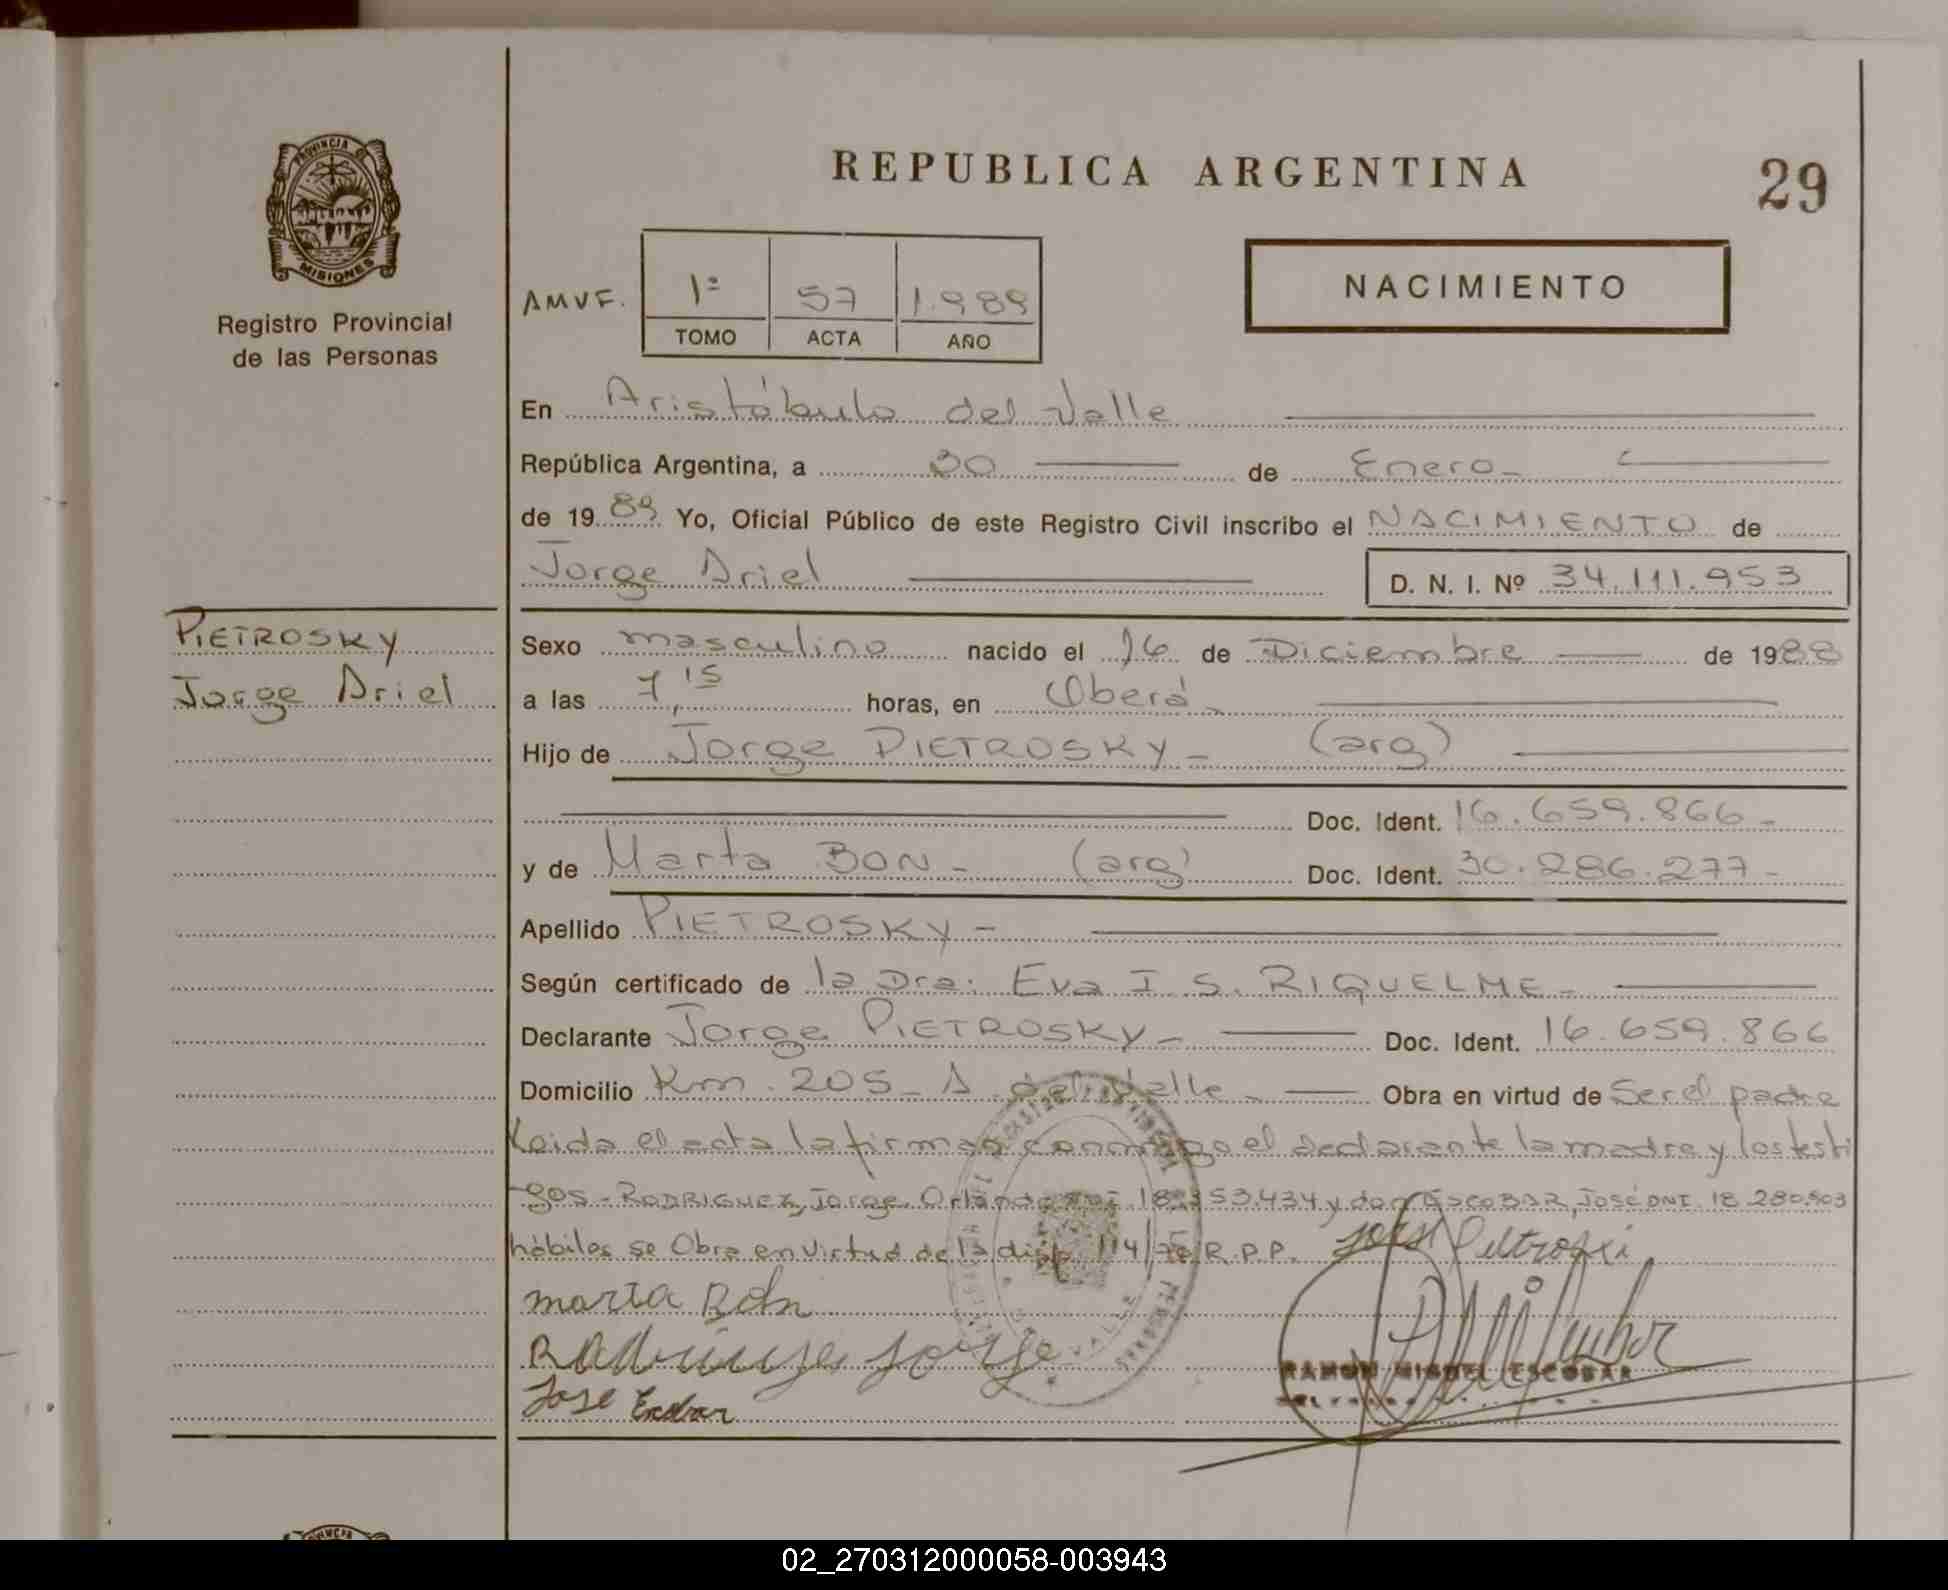 PROVINCIA DE
MISIONES
Registro Provincial
de las Personas
REPUBLICA ARGENTINA
29
NACIMIENTO
AMVF.
1º 57 1.989
TOMO ACTA AÑO
En Aristóbulo del Valle
República Argentina, a 30 de Enero
de 1989 Yo, Oficial Público de este Registro Civil inscribo el NACIMIENTO de
Jorge Ariel D. N. I. Nº 34.111.953
PIETROSKY
Jorge Ariel
Sexo masculino nacido el 16 de Diciembre de 1988
a las 7,15 horas, en Oberá
Hijo de Jorge PIETROSKY - (arg)
Doc. Ident. 16.659.866 -
y de Marta BON - (arg) Doc. Ident. 30.286.277 -
Apellido PIETROSKY -
Según certificado de la Dra: Eva I. S. RIQUELME -
Declarante Jorge PIETROSKY - Doc. Ident. 16.659.866
Domicilio Km. 205 - A. del Valle - Obra en virtud de Ser el padre
Leida el acta la firman conmigo el declarante la madre y los testi
gos - RODRIGUEZ, Jorge Orlando 18.353.434 y don ESCOBAR, José DNI. 18.280.503
hábiles se Obra en virtud de la disp. 114/76 R.P.P.
marta Bon
Jose
RAMON MIGUEL ESCOBAR
02_270312000058-003943